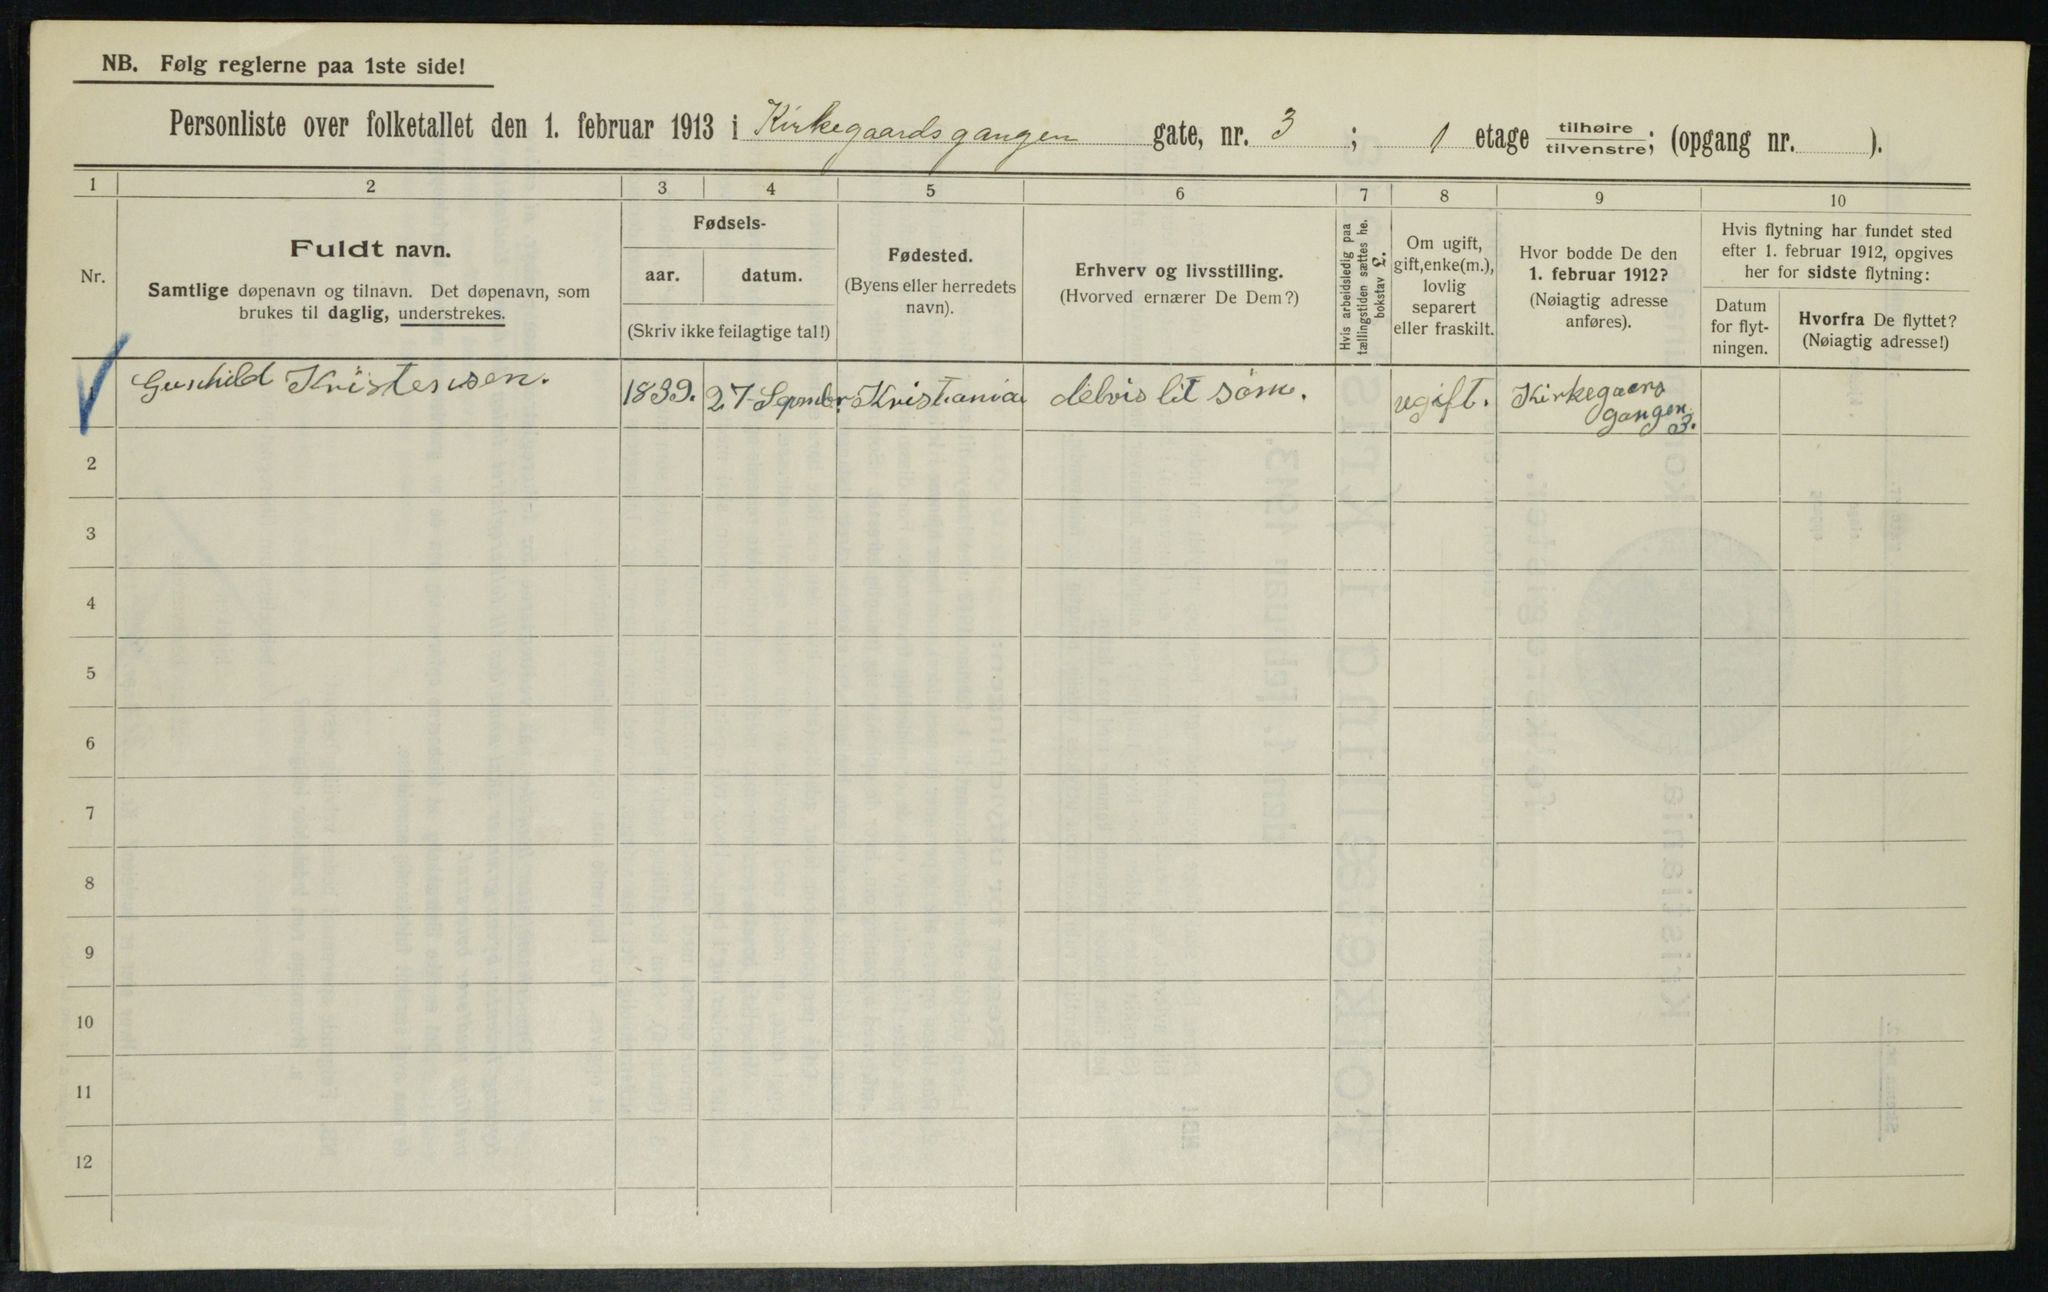 NB. Følg reglerne paa 1ste side!
Personliste over folketallet den 1. februar 1913 i Kirkegaardsgangen gate, nr. 3 ; 1 etage tilhøire tilvenstre; (opgang nr. ).
1 2 3 4 5 6 7 8 9 10
Nr.
Fuldt navn.
Samtlige døpenavn og tilnavn. Det døpenavn, som
brukes til daglig, understrekes.
Fødsels-
aar. datum.
(Skriv ikke feilagtige tal!)
Fødested.
(Byens eller herredets
navn).
Erhverv og livsstilling.
(Hvorved ernærer De Dem?)
Hvis arbeidsledig paa
tællingstiden sættes he.
bokstav L.
Om ugift,
gift, enke(m.),
lovlig
separert
eller fraskilt.
Hvor bodde De den
1. februar 1912?
(Nøiagtig adresse
anføres).
Hvis flytning har fundet sted
efter 1. februar 1912, opgives
her for sidste flytning:
Datum
for flyt-
ningen.
Hvorfra De flyttet?
(Nøiagtig adresse!)
Kristensen. 1839. 27 Kristiania delvis lit søm. ugift. Kirkegaers
gangen
3.
2
3
4
5
6
7
8
9
10
11
12